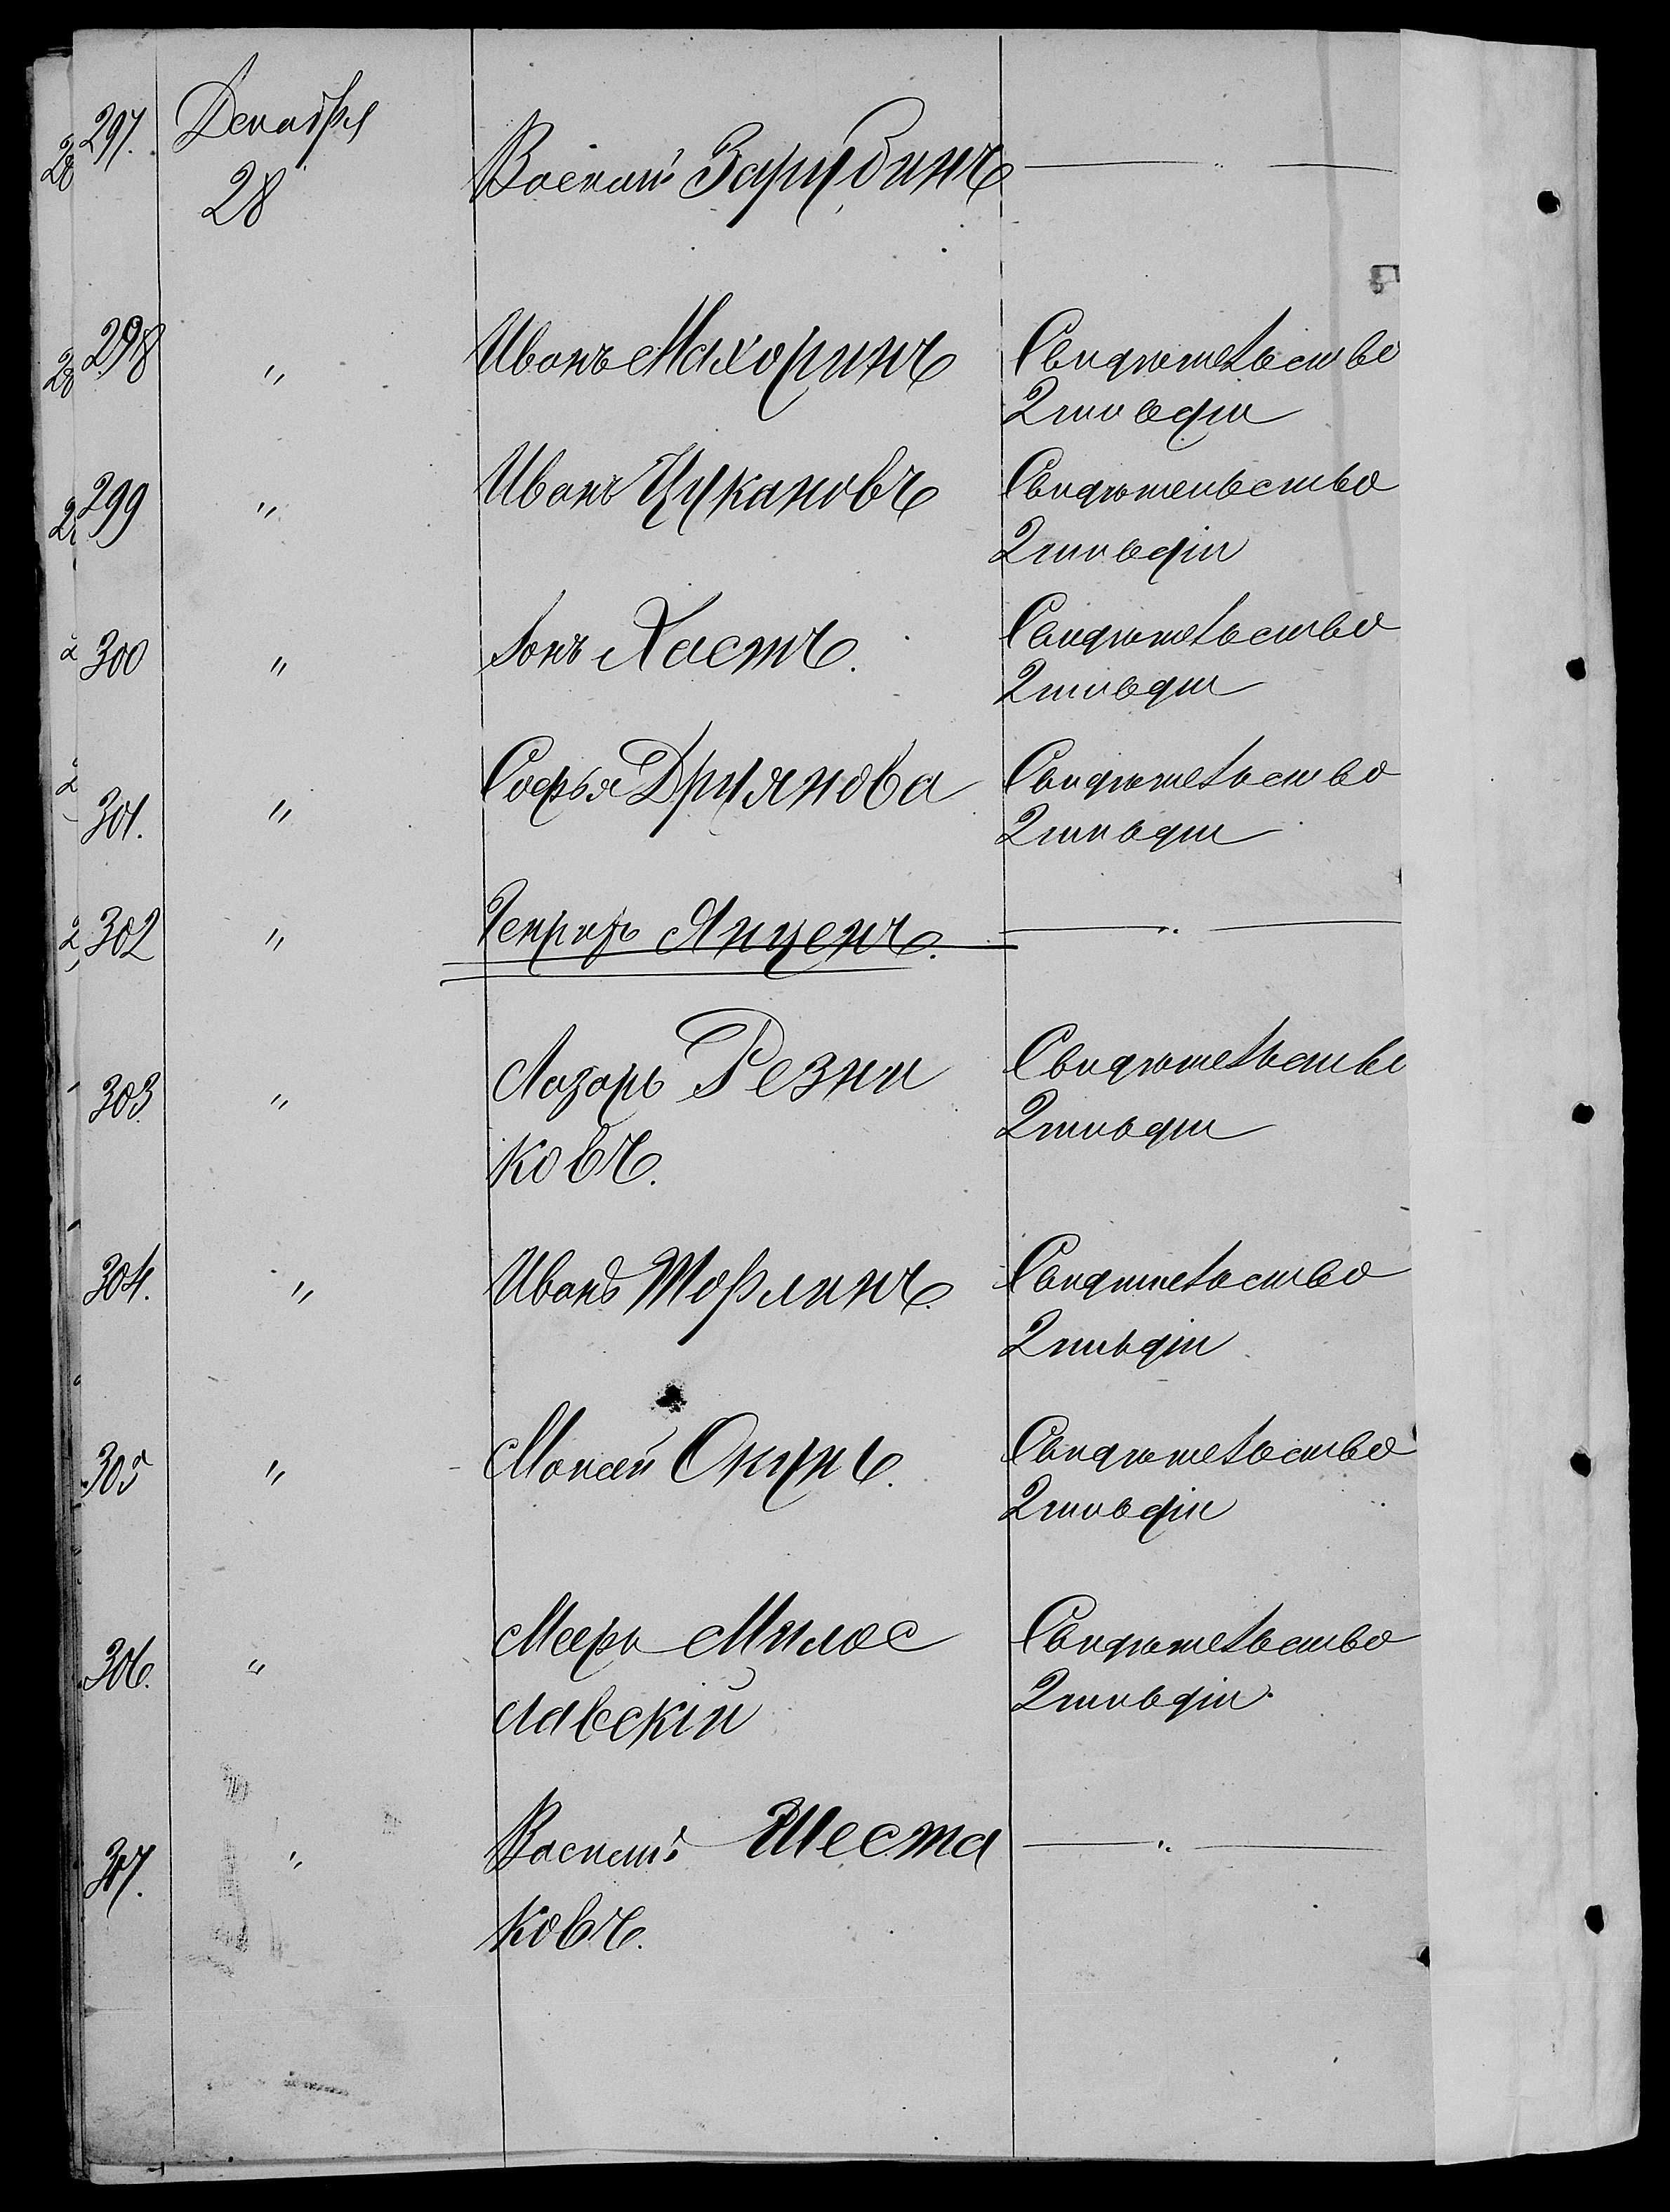 297. Декабря
28
Василiй Зарубинъ — " —
298 " Иванъ Махоринъ Свидѣтельство
2 гильдiи
299 " Иванъ Цукановъ Свидѣтельство
2 гильдiи
300 " Хасть. Свидѣтельство
2 гильдiи
301. " Софья Друянова Свидѣтельство
2 гильдiи
302 " Генрихъ Янценъ. — " —
303. " Лазарь Резни Свидѣтельство
ковъ. 2 гильдiи
304. " Иванъ Торлинъ. Свидѣтельство
2 гильдiи
305 " Моисей Окунь. Свидѣтельство
2 гильдiи
306. " Мееръ Милос Свидѣтельство
лавскiй 2 гильдiи.
307. " Василiй Шеста — " —
ковъ.